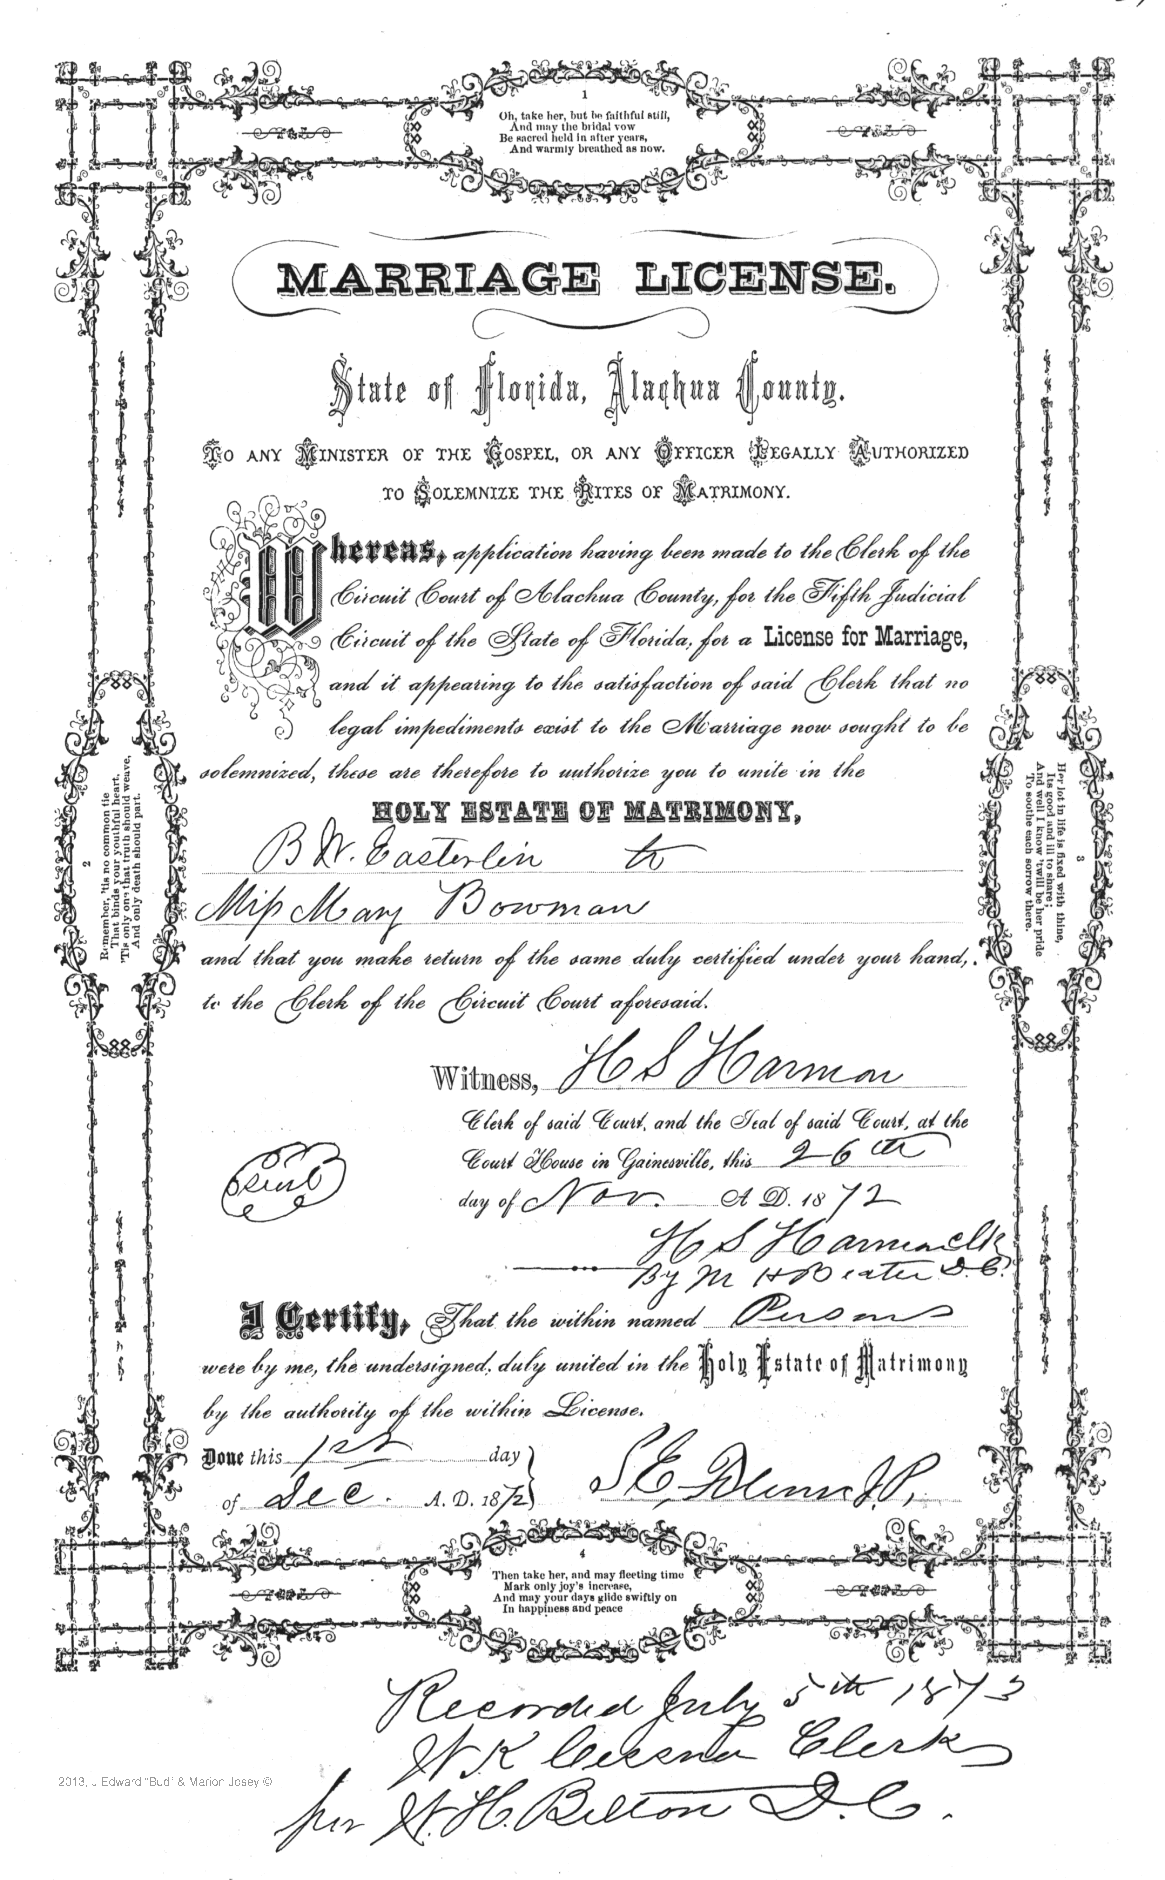 1
Oh, take her, but be faithful still,
And may the bridal vow
Be sacred held in after years,
And warmly breathed as now.
MARRIAGE LICENSE.
State of Florida, Alachua County.
TO ANY MINISTER OF THE GOSPEL, OR ANY OFFICER LEGALLY AUTHORIZED
TO SOLEMNIZE THE RITES OF MATRIMONY.
Whereas, application having been made to the Clerk of the
Circuit Court of Alachua County, for the Fifth Judicial
Circuit of the State of Florida, for a License for Marriage,
and it appearing to the satisfaction of said Clerk that no
legal impediments exist to the Marriage now sought to be
solemnized, these are therefore to authorize you to unite in the
HOLY ESTATE OF MATRIMONY,
B W. Easterlin to
Miss Mary Bowman
and that you make return of the same duly certified under your hand,
to the Clerk of the Circuit Court aforesaid.
2
Remember, 'tis no common tie
That binds your youthful heart,
'Tis only one that truth should weave,
And only death should part.
3
Her lot in life is fixed with thine,
Its good and ill to share;
And well I know 'twill be her pride
To soothe each sorrow there.
Witness, H S Harmon
Clerk of said Court, and the Seal of said Court, at the
Court House in Gainesville, this 26th
day of Nov. A D. 1872
H S Harmon Clk
By M H D.C.
I Certify, That the within named Persons
were by me, the undersigned, duly united in the Holy Estate of Matrimony
by the authority of the within License.
Done this 1st day
of Dec. A. D. 1872
S E, J.P.
4
Then take her, and may fleeting time
Mark only joy's increase,
And may your days glide swiftly on
In happiness and peace
Recorded July 5th 1873
W K Cessna Clerk
per W. H. Belton D.C.
2013, J. Edward "Bud" & Marion Josey ©